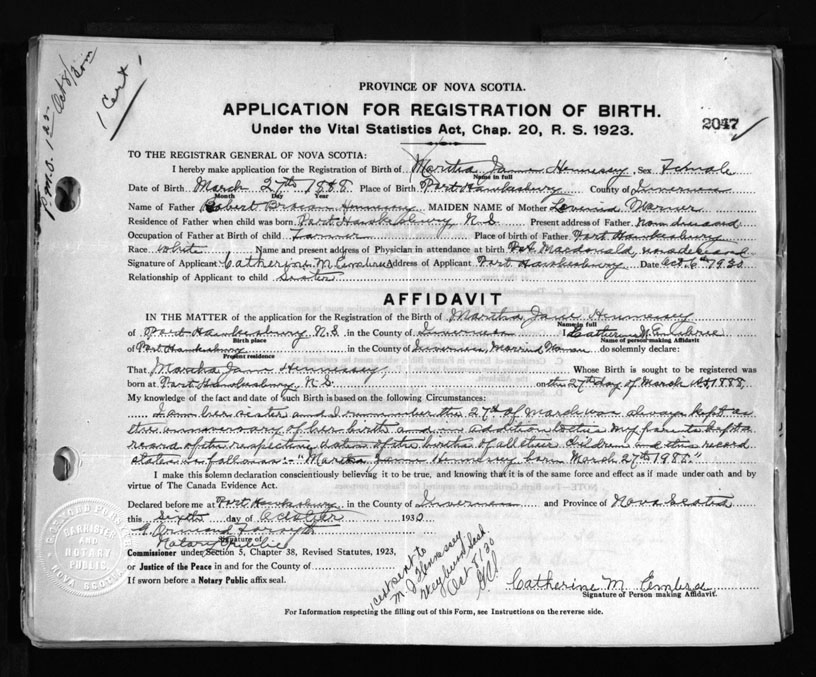 1 Cert
Oct 8/30
PROVINCE OF NOVA SCOTIA.
APPLICATION FOR REGISTRATION OF BIRTH.
Under the Vital Statistics Act, Chap. 20, R. S. 1923.
2047
TO THE REGISTRAR GENERAL OF NOVA SCOTIA:
I hereby make application for the Registration of Birth of Martha Jane Hennessy Sex Female
Name in full
Date of Birth March 27th 1888 Place of Birth Port Hawkesbury County of Inverness
Month Day Year
Name of Father Robert Hennessy MAIDEN NAME of Mother Lovinia Warner
Residence of Father when child was born Port Hawkesbury N.S. Present address of Father now deceased
Occupation of Father at Birth of child Farmer Place of birth of Father Port Hawkesbury
Race white Name and present address of Physician in attendance at birth Macdonald, now deceased
Signature of Applicant Catherine M. Embree Address of Applicant Port Hawkesbury Date Oct. 6th 1930
Relationship of Applicant to child Sister
AFFIDAVIT
IN THE MATTER of the application for the Registration of the Birth of Martha Jane Hennessy
Name in full
of Port Hawkesbury N.S. in the County of Inverness I Catherine M. Embree
Birth place Name of person making Affidavit
of Port Hawkesbury in the County of Inverness, Married Woman do solemnly declare:
Present residence
That Martha Jane Hennessy Whose Birth is sought to be registered was
born at Port Hawkesbury, N.S. on the 27th day of March 1888.
My knowledge of the fact and date of such Birth is based on the following Circumstances:
I am her sister and I remember the 27th of March was always kept as
the anniversary of her birth and in addition to this my parents kept a
record of the respective dates of the births of all their children and this record
states as follows:- "Martha Jane Hennessy born March 27th 1888."
I make this solemn declaration conscientiously believing it to be true, and knowing that it is of the same force and effect as if made under oath and by
virtue of The Canada Evidence Act.
Declared before me at Port Hawkesbury in the County of Inverness and Province of Nova Scotia
this sixth day of October 1930
Signature of
Notary Public
Commissioner under Section 5, Chapter 38, Revised Statutes, 1923,
or Justice of the Peace in and for the County of
If sworn before a Notary Public affix seal.
BARRISTER
AND
NOTARY
PUBLIC
NOVA SCOTIA
1 cert sent to
M. J. Hennessy
Oct 8/30
Catherine M. Embree
Signature of Person making Affidavit.
For Information respecting the filling out of this Form, see Instructions on the reverse side.